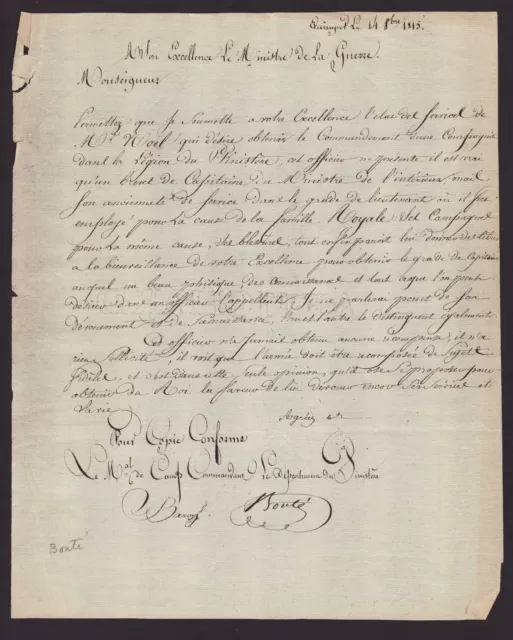 Quimper Le 14 8bre 1815.
A Son Excellence Le Ministre de La Guerre.
Monseigneur
Permettez que Je Soumette a votre Excellence l'etat des services de
Mr. Noël qui désire obtenir le Commandement d'une Compagnie
dans la Légion du Finistère, cet officier ne présente il est vrai
qu'un brevet de Capitaine du Ministre de l'intérieur, mais
Son ancienneté de service dans le grade de lieutenant où il fut
employé pour La cause de la famille Royale Ses Campagnes
pour La même cause, Ses blessures, tout enfin paraît lui donner des titres
a la bienveillance de votre Excellence pour obtenir le grade de Capitaine
auquel un beau physique, des connaissances et tout ce que l'on peut
désirer dans un officier l'appellent. Je ne parlerai point de Son
dévouement et de Sa L'un et l'autre le distinguent également
Cet officier n'a Jamais obtenu aucune récompense, il n'a
rien Sollicité, il croit que l'armée doit être composée de Sujets
fidèles, et c'est dans cette Seule opinion, qu'il ose Se proposer pour
obtenir du Roi la faveur de lui dévouer encore Ses Services et
Sa vie
Pour Copie Conforme
Le Mal de Camp Commandant Le Département du Finistère
Baron Bonté
Bonté